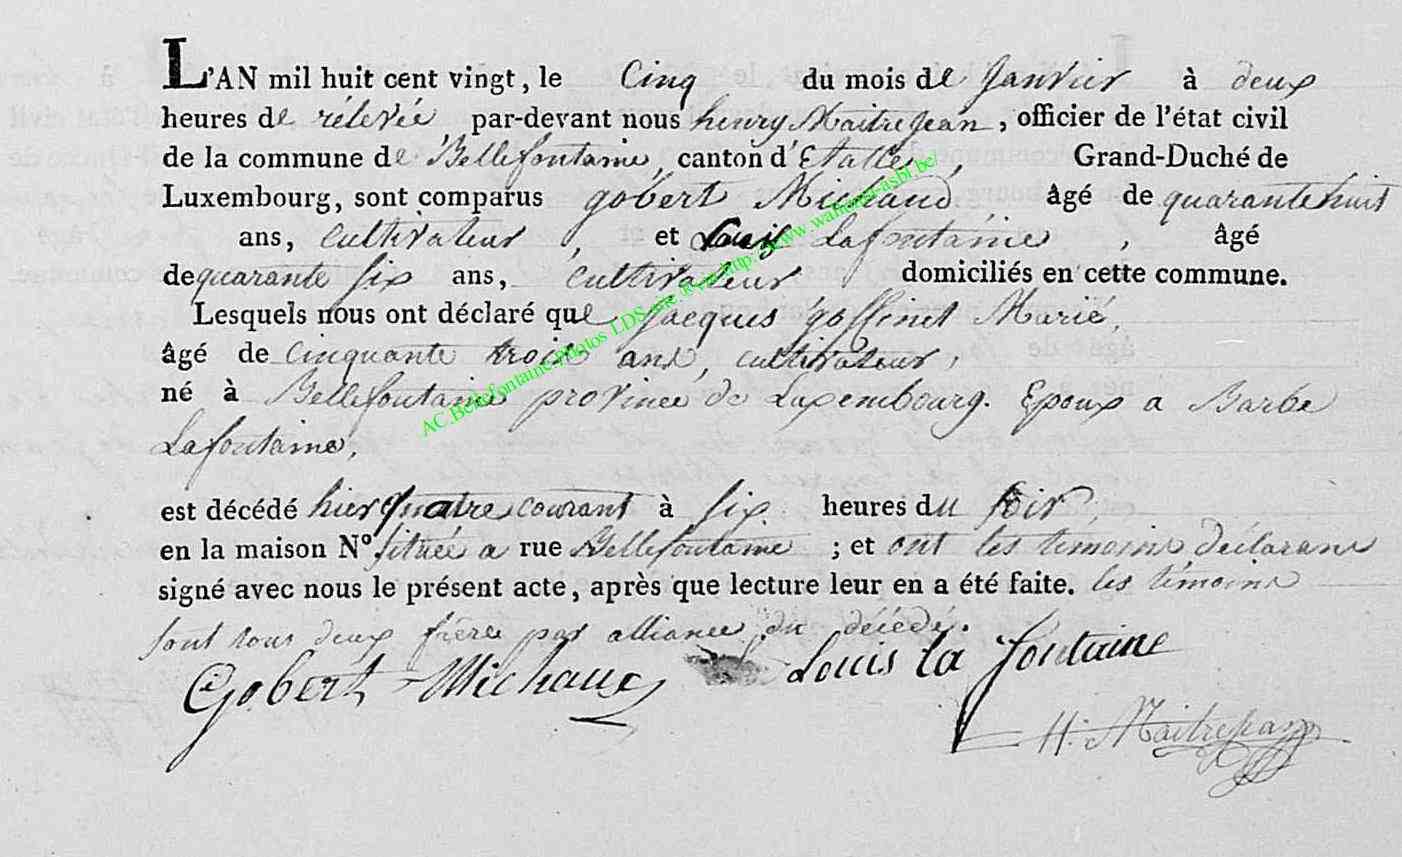 L'AN mil huit cent vingt, le Cinq du mois de Janvier à deux
heures de rélevée par-devant nous henry Maitrejean, officier de l'état civil
de la commune de Bellefontaine, canton d'Etalle, Grand-Duché de
Luxembourg, sont comparus gobert Michaux, âgé de quarante huit
ans, cultivateur, et Louis Lafontaine, âgé
de quarante six ans, cultivateur domiciliés en cette commune.
Lesquels nous ont déclaré que Jacques goffinet Marié,
âgé de cinquante trois ans, cultivateur,
né à Bellefontaine province de Luxembourg. Epoux a Barbe
Lafontaine,
est décédé hier quatre courant à six heures du soir,
en la maison N° située a rue Bellefontaine ; et ont les témoins déclarans
signé avec nous le présent acte, après que lecture leur en a été faite. les témoins
sont tous deux frère par alliance du décédé.
Gobert Michaux Louis la fontaine
H. Maitrejean
AC.Bellefontaine photos LDS http://www.wallonica